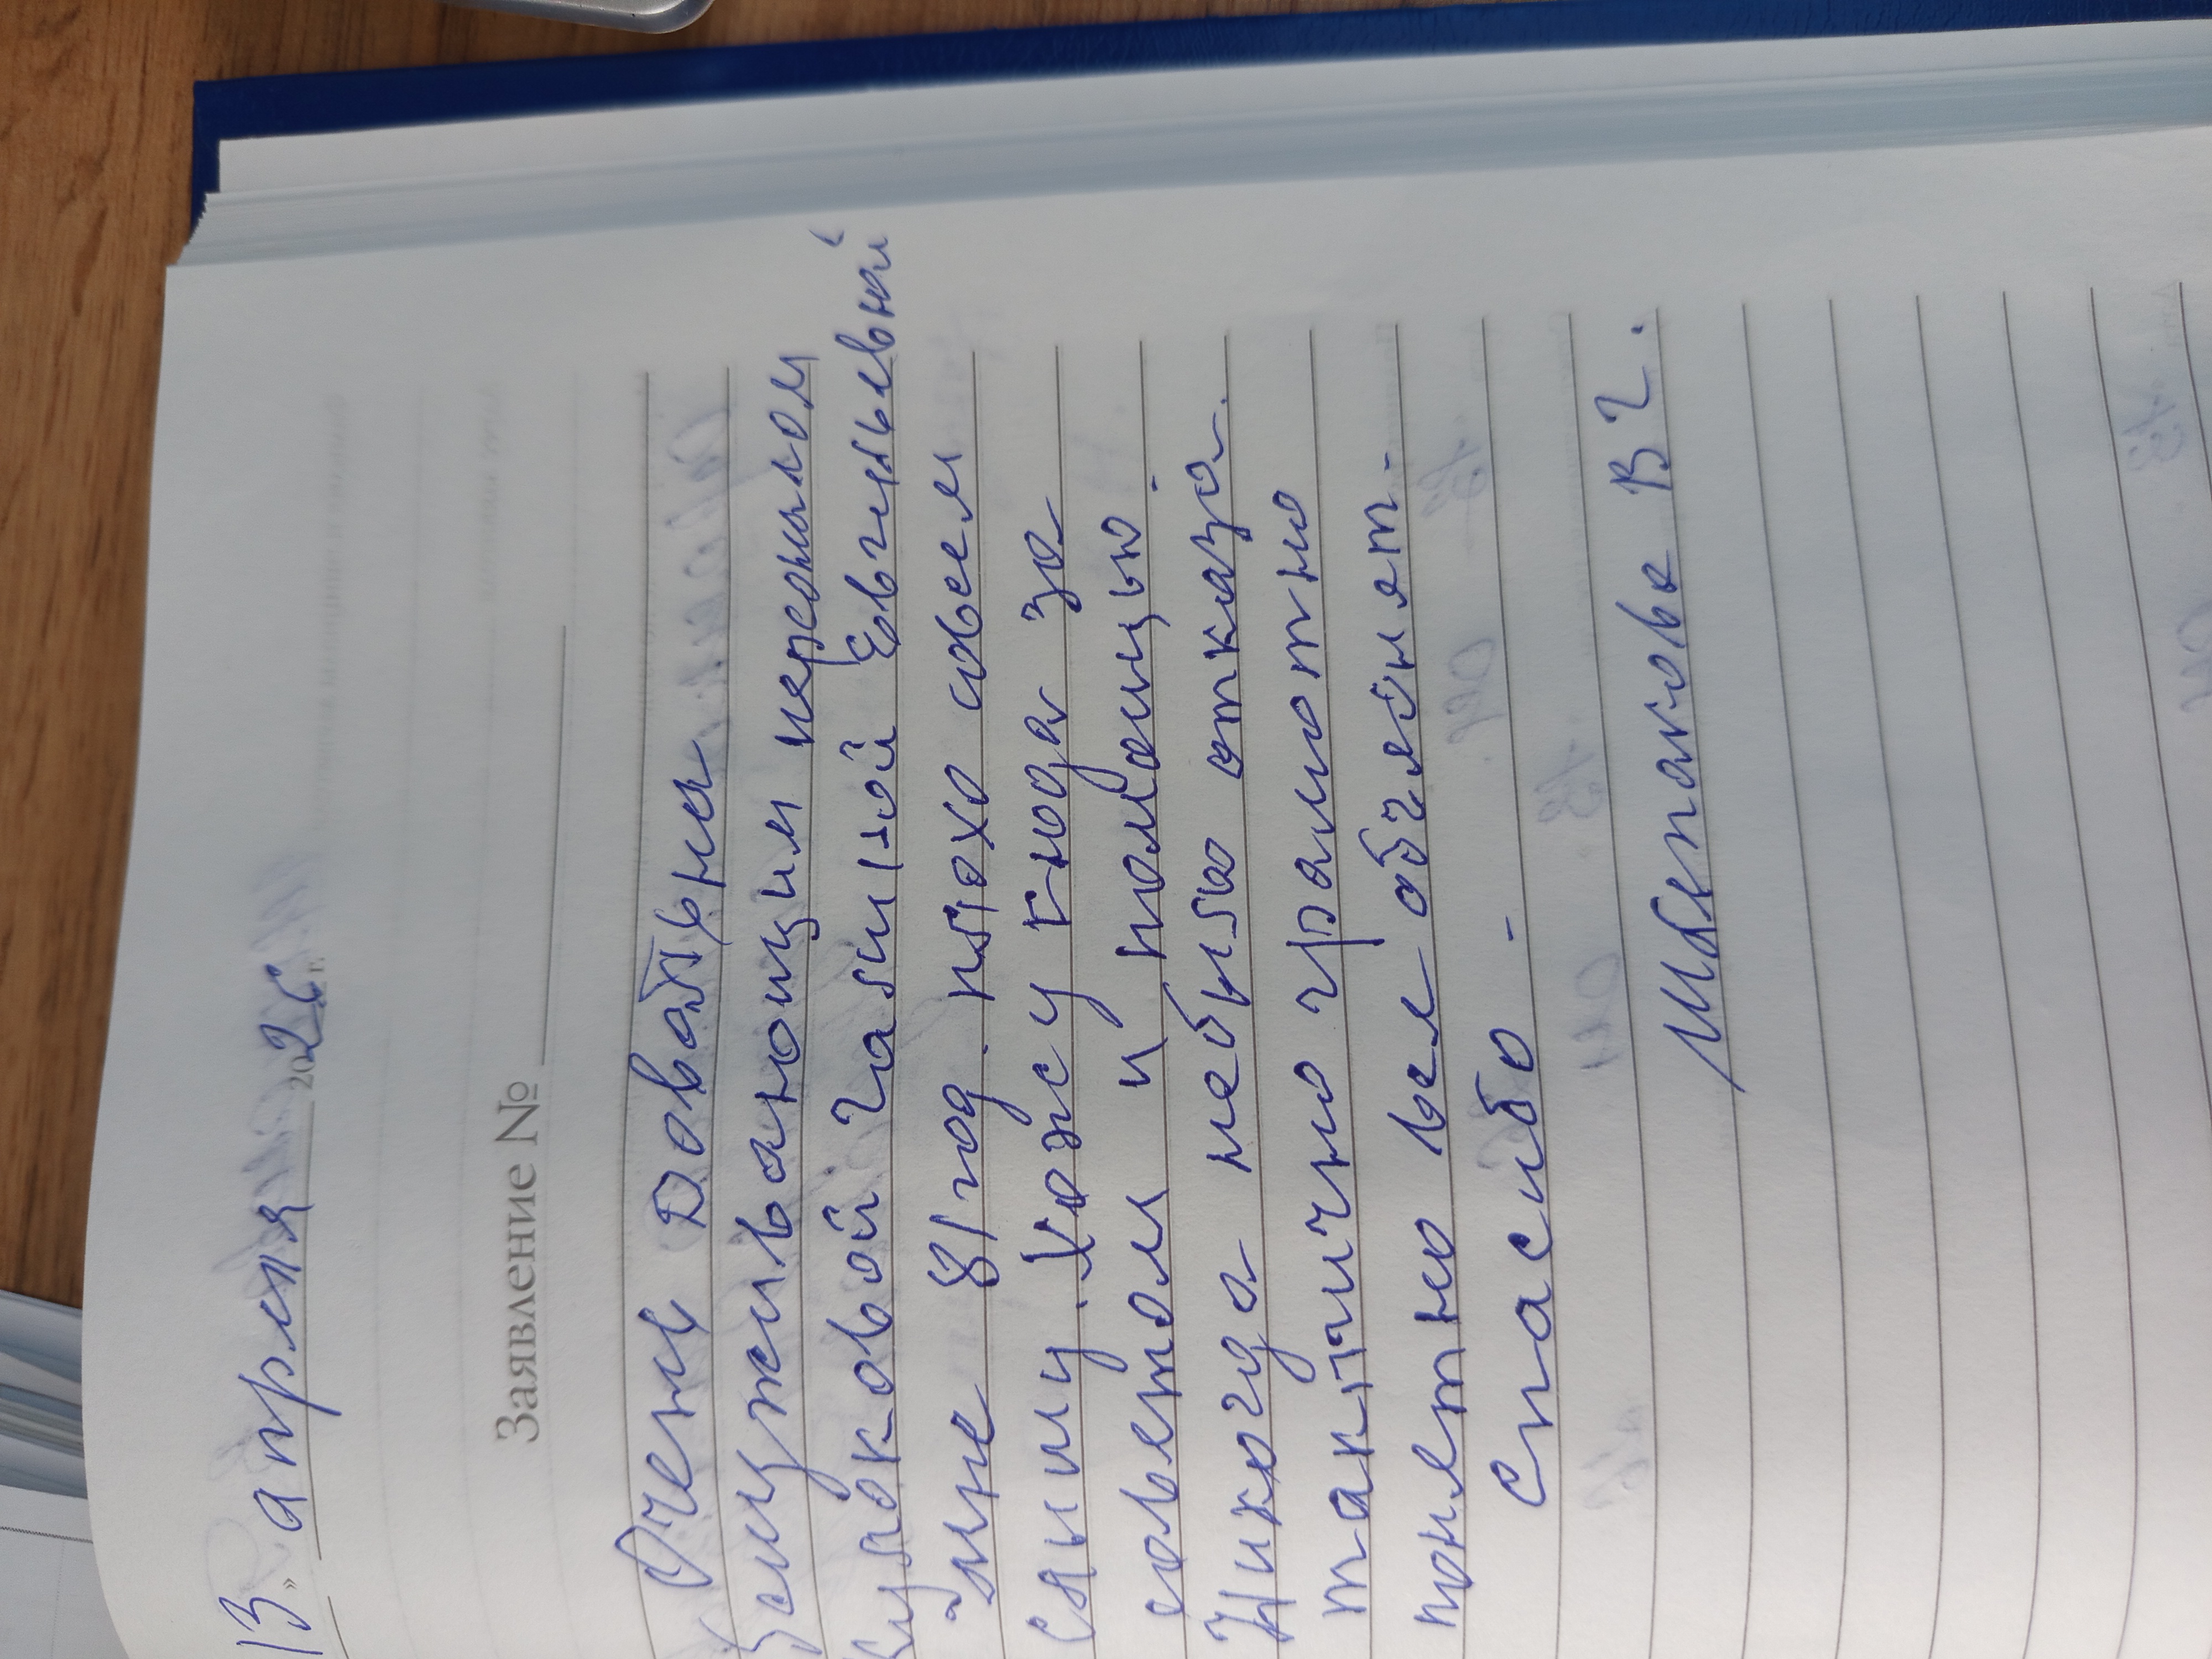 13 » апреля 2026 г.
Заявление №
Очень довольны
обслуживающим персоналом
Куликовой Галиной Евгеньевной
мне 81 год. плохо совсем
слышу. Хожу сюда за
советом и помощью.
Никогда не было отказа.
тактично грамотно
понятно все объяснят.
Спасибо.
В Г.